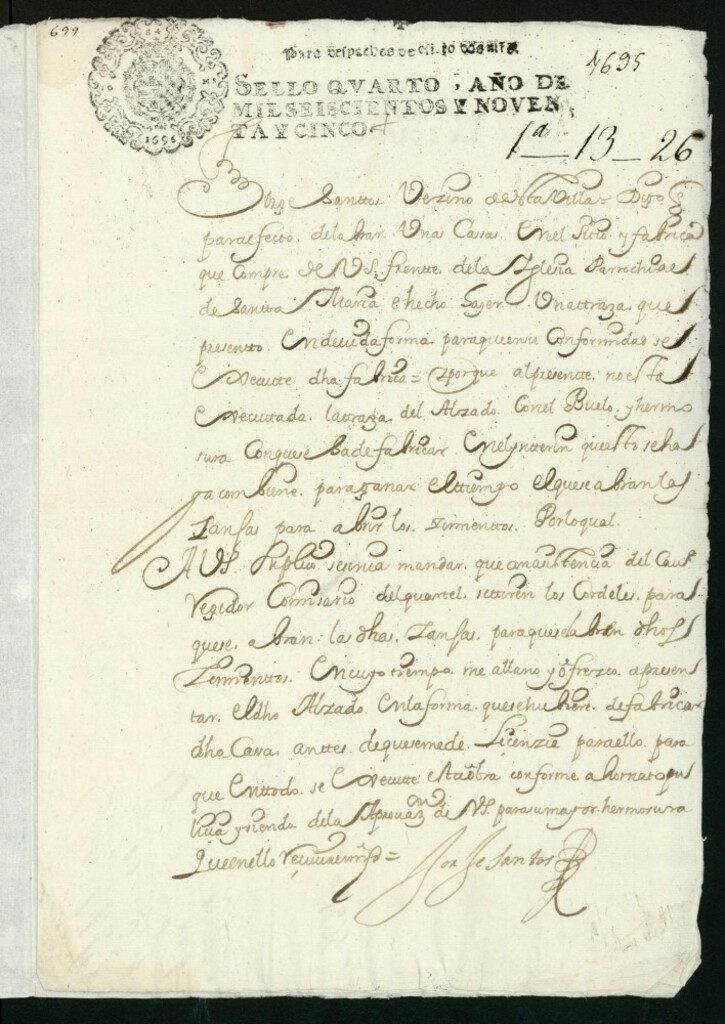 699
Para despachos de oficio dos mrs.
1695
SELLO QVARTO, AÑO DE
MIL SEISCIENTOS Y NOVEN
TA Y CINCO
1695
1ª—13—26
Jorge Santtos Vezino de esta Villa = Digo q
para efecto de labrar Una Cassa Enel Sitio y fabrica
que Compre de VS. frente de la Yglesia Parrochial
de Santta Maria e hecho hazer Una ttraza que
presentto En devida forma para que en su Conformidad se
Execute dha fabrica = Y porque al presentte no esta
Executada la traza del Alzado Con el Buelo y hermo
sura Conque se ha de fabricar Enel ynterin que esto se ha
ga combiene para ganar el ttiempo el que se abran las
Zanjas para abrir los Zimienttos Por lo qual
A VS Suplico se sirva mandar que con asistencia del Cavº
Regidor Comisario del quartel se ttiren los Cordeles para
que se abran las dhas Zanjas para que se labren dhos
Zimienttos En cuyo tiempo me allano y ofrezco a presen
tar el dho Alzado En la forma que se hubiere de fabricar
dha Cassa anttes de que se me de Licenzia para ello para
que En ttodo se Execute esta obra conforme a hornato pu
blico y siendo de la Aprovazon de VS. para su mayor hermosura
Que en ello Recivire mrd =
Jorge Santos